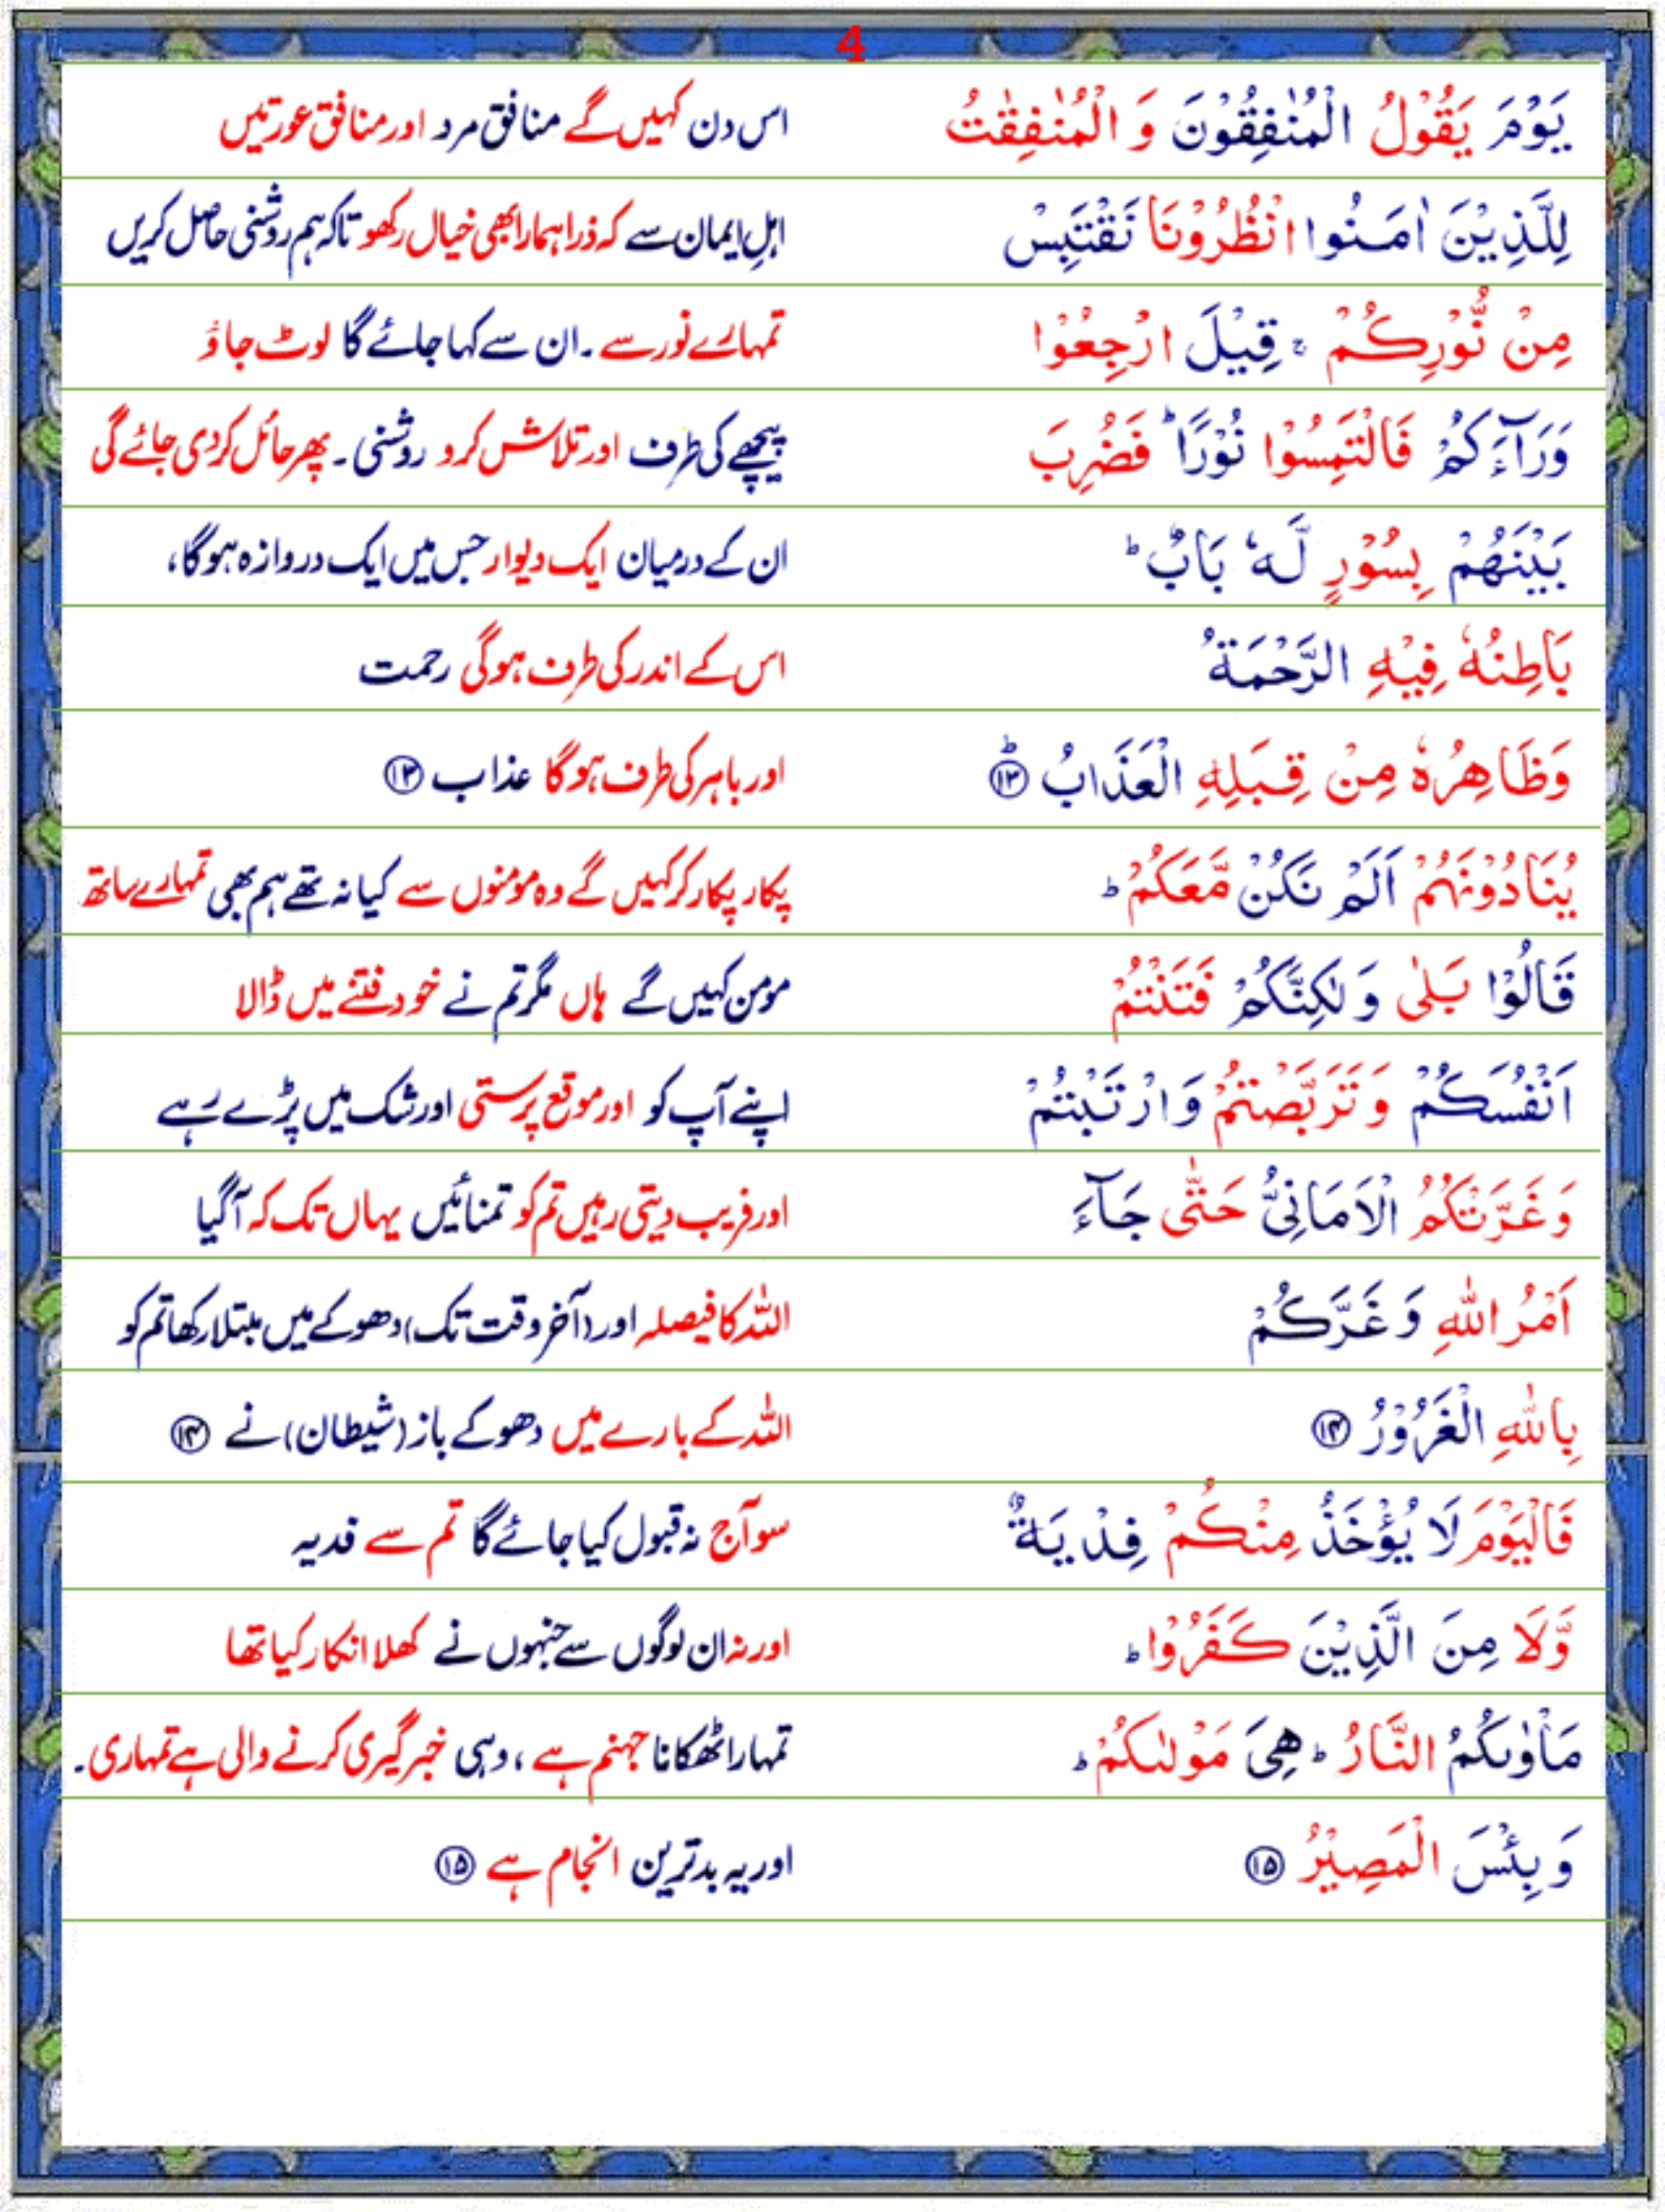 4
يَوْمَ يَقُوْلُ الْمُنٰفِقُوْنَ وَ الْمُنٰفِقٰتُ اس دن کہیں گے منافق مرد اور منافق عورتیں
لِلَّذِيْنَ اٰمَنُوا انْظُرُوْنَا نَقْتَبِسْ اہلِ ایمان سے کہ ذرا ہمارا بھی خیال رکھو تاکہ ہم روشنی حاصل کریں
مِنْ نُّوْرِكُمْ ۚ قِيْلَ ارْجِعُوْا تمہارے نور سے ۔ ان سے کہا جائے گا لوٹ جاؤ
وَرَآءَكُمْ فَالْتَمِسُوْا نُوْرًا ؕ فَضُرِبَ پیچھے کی طرف اور تلاش کرو روشنی ۔ پھر حائل کردی جائے گی
بَيْنَهُمْ بِسُوْرٍ لَّهٗ بَابٌ ؕ ان کے درمیان ایک دیوار جس میں ایک دروازہ ہوگا،
بَاطِنُهٗ فِيْهِ الرَّحْمَةُ اس کے اندر کی طرف ہوگی رحمت
وَظَاهِرُهٗ مِنْ قِبَلِهِ الْعَذَابُ ؕ ۱۳ اور باہر کی طرف ہوگا عذاب ۱۳
يُنَادُوْنَهُمْ اَلَمْ نَكُنْ مَّعَكُمْ ؕ پکار پکار کر کہیں گے وہ مومنوں سے کیا نہ تھے ہم بھی تمہارے ساتھ
قَالُوْا بَلٰى وَلٰكِنَّكُمْ فَتَنْتُمْ مومن کہیں گے ہاں مگر تم نے خود فتنے میں ڈالا
اَنْفُسَكُمْ وَتَرَبَّصْتُمْ وَارْتَبْتُمْ اپنے آپ کو اور موقع پرستی اور شک میں پڑے رہے
وَغَرَّتْكُمُ الْاَمَانِىُّ حَتّٰى جَآءَ اور فریب دیتی رہیں تم کو تمنائیں یہاں تک کہ آگیا
اَمْرُ اللّٰهِ وَغَرَّكُمْ اللہ کا فیصلہ اور (آخر وقت تک) دھوکے میں مبتلا رکھا تم کو
بِاللّٰهِ الْغَرُوْرُ ۱۴ اللہ کے بارے میں دھوکے باز (شیطان) نے ۱۴
فَالْيَوْمَ لَا يُؤْخَذُ مِنْكُمْ فِدْيَةٌ سو آج نہ قبول کیا جائے گا تم سے فدیہ
وَّلَا مِنَ الَّذِيْنَ كَفَرُوْا ؕ اور نہ ان لوگوں سے جنہوں نے کھلا انکار کیا تھا
مَاْوٰىكُمُ النَّارُ ؕ هِىَ مَوْلٰىكُمْ ؕ تمہارا ٹھکانا جہنم ہے، وہی خبر گیری کرنے والی ہے تمہاری ۔
وَبِئْسَ الْمَصِيْرُ ۱۵ اور یہ بدترین انجام ہے ۱۵